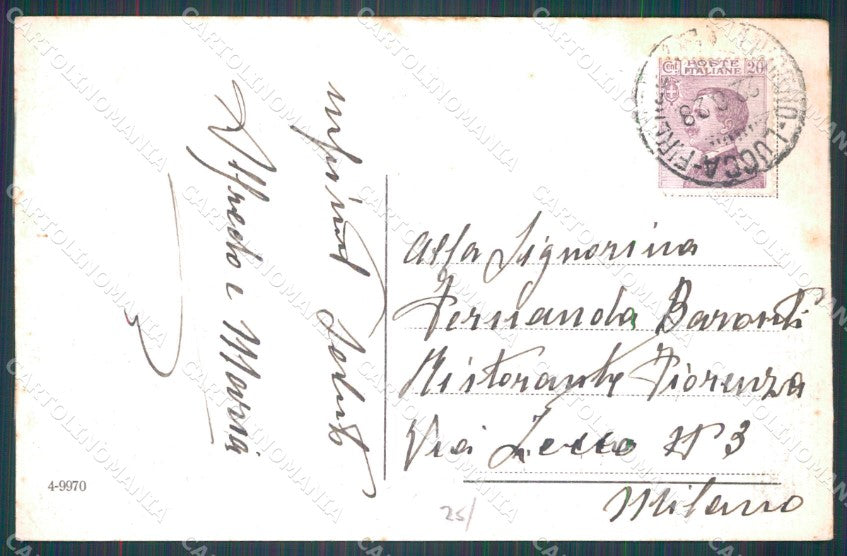 Alfredo e Maria
Saluti
4-9970
25/
POSTE
ITALIANE
Ct 20
LUCCA-FIRENZE
Alla Signorina
Fernanda Baronti
Ristorante Fiorenza
Via Lecco N 3
Milano
CARTOLINOMANIA